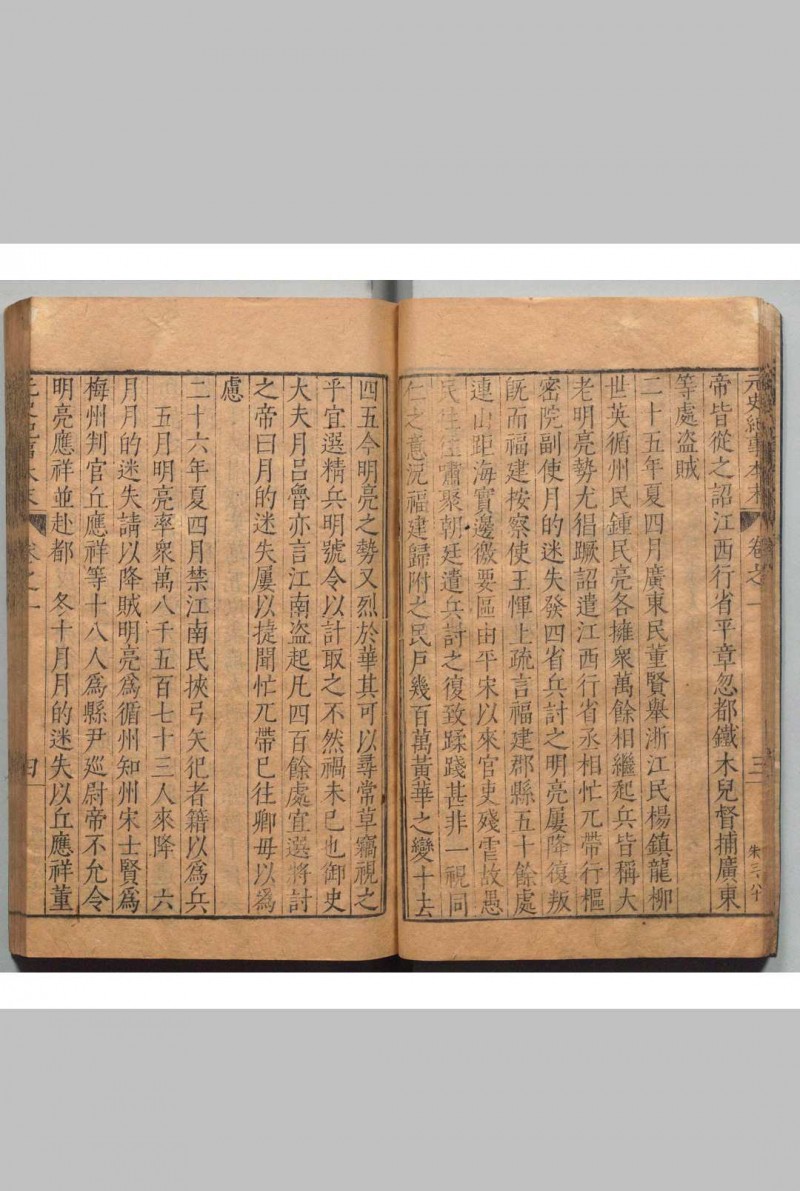 元史紀事本末 卷之一 三
帝皆從之詔江西行省平章忽都鐵木兒督捕廣東
等處盜賊
二十五年夏四月廣東民董賢舉浙江民楊鎮龍柳
世英循州民鍾民亮各擁衆萬餘相繼起兵皆稱大
老明亮勢尤猖蹶詔遣江西行省丞相忙兀帶行樞
密院副使月的迷失發四省兵討之明亮屢降復叛
旣而福建按察使王惲上疏言福建郡縣五十餘處
連山距海實邊徼要區由平宋以來官吏殘虐故愚
民往往嘯聚朝廷遣兵討之復致蹂踐甚非一視同
仁之意況福建歸附之民戶幾百萬黃華之變十去
四五今明亮之勢又烈於華其可以尋常草竊視之
乎宜選精兵明號令以計取之不然禍未已也御史
大夫月呂魯亦言江南盜起凡四百餘處宜選將討
之帝曰月的迷失屢以捷聞忙兀帶已往卿毋以爲
慮
二十六年夏四月禁江南民挾弓矢犯者籍以爲兵
五月明亮率衆萬八千五百七十三人來降 六
月月的迷失請以降賊明亮爲循州知州宋士賢爲
梅州判官丘應祥等十八人爲縣尹巡尉帝不允令
明亮應祥並赴都 冬十月月的迷失以丘應祥董
元史紀事本末 卷之一 四